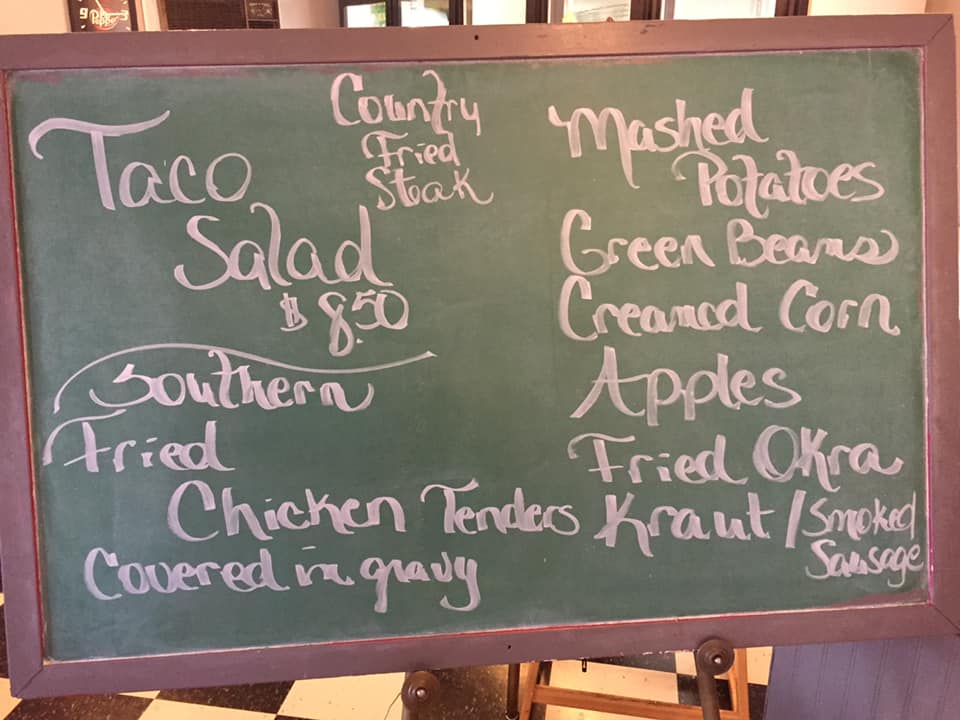 9 3
Pepper
Country
Fried
Steak
Taco
Salad
$8.50
Southern
Fried
Chicken Tenders
Covered in gravy
Mashed
Potatoes
Green Beans
Creamed Corn
Apples
Fried Okra
Kraut / Smoked
Sausage